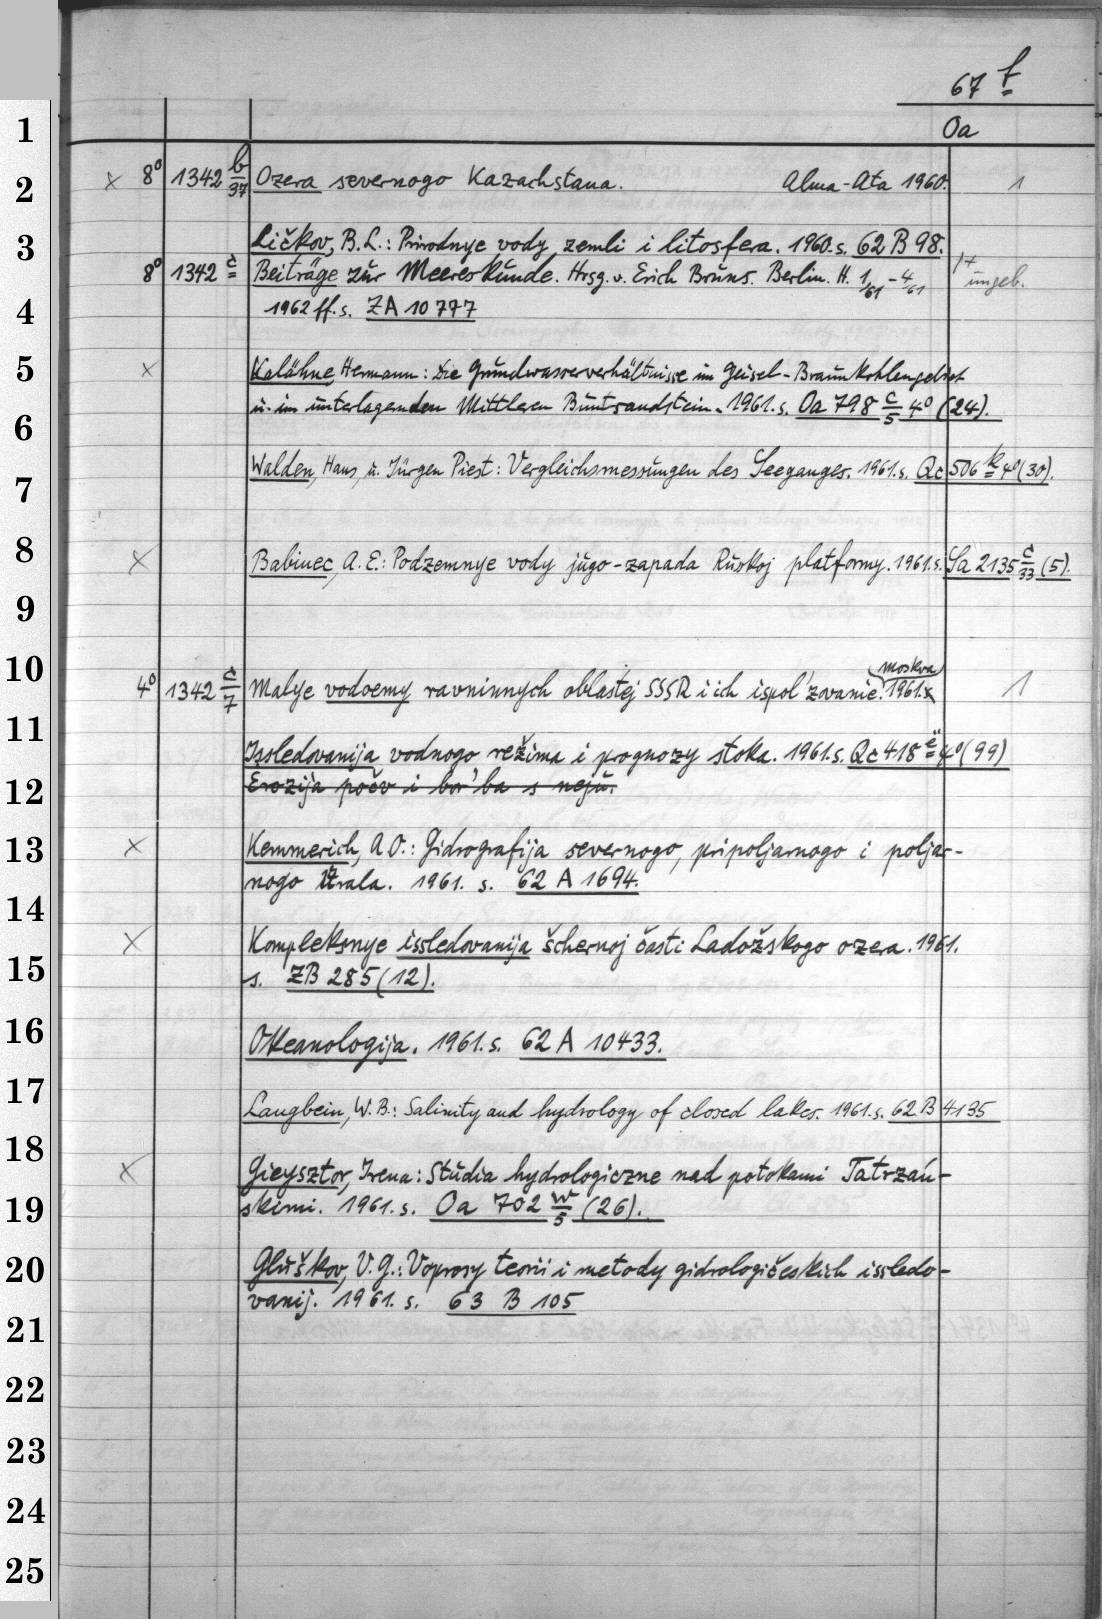 67 f
Oa
1
2 × 8° 1342 b/37 Ozera severnogo Kazachstana. Alma-Ata 1960. 1
3 Ličkov, B.L.: Prirodnye vody zemli i litosfera. 1960. s. 62 B 98.
8° 1342 c Beiträge zur Meereskunde. Hrsg. v. Erich Bruns. Berlin. H. 1/61 - 4/61 1+ ungeb.
4 1962 ff. s. ZA 10777
5 × Kalähne, Hermann: Die Grundwasserverhältnisse im Geisel-Braunkohlengebiet
6 u. im unterlagenden Mittleren Buntsandstein. 1961. s. Oa 798 c/5 4° (24).
7 Walden, Hans, u. Jürgen Piest: Vergleichsmessungen des Seeganges. 1961. s. Qc 506 k 4° (30).
8 × Babinec, A. E.: Podzemnye vody jugo-zapada Ruskoj platformy. 1961. s. Sa 2135 c/33 (5).
9
10 Moskva
4° 1342 c/7 Malye vodoemy ravninnych oblastej SSSR i ich ispol'zovanie. 1961. 1
11 Issledovanija vodnogo režima i prognozy stoka. 1961. s. Qc 418 e 4° (99)
12 Erozija počv i bor'ba s neju.
13 × Kemmerich, A.O.: Gidrografija severnogo, pripoljarnogo i poljar-
nogo Urala. 1961. s. 62 A 1694.
14
× Kompleksnye issledovanija šchernoj časti Ladožskogo ozera. 1961.
15 s. ZB 285 (12).
16 Okeanologija. 1961. s. 62 A 10433.
17 Langbein, W.B.: Salinity and hydrology of closed lakes. 1961. s. 62 B 4135
18
× Gieysztor, Irena: Studia hydrologiczne nad potokami Tatrzań-
19 skimi. 1961. s. Oa 702 w/5 (26).
20 Gluškov, V. G.: Voprosy teorii i metody gidrologičeskich issledo-
vanij. 1961. s. 63 B 105
21
22
23
24
25